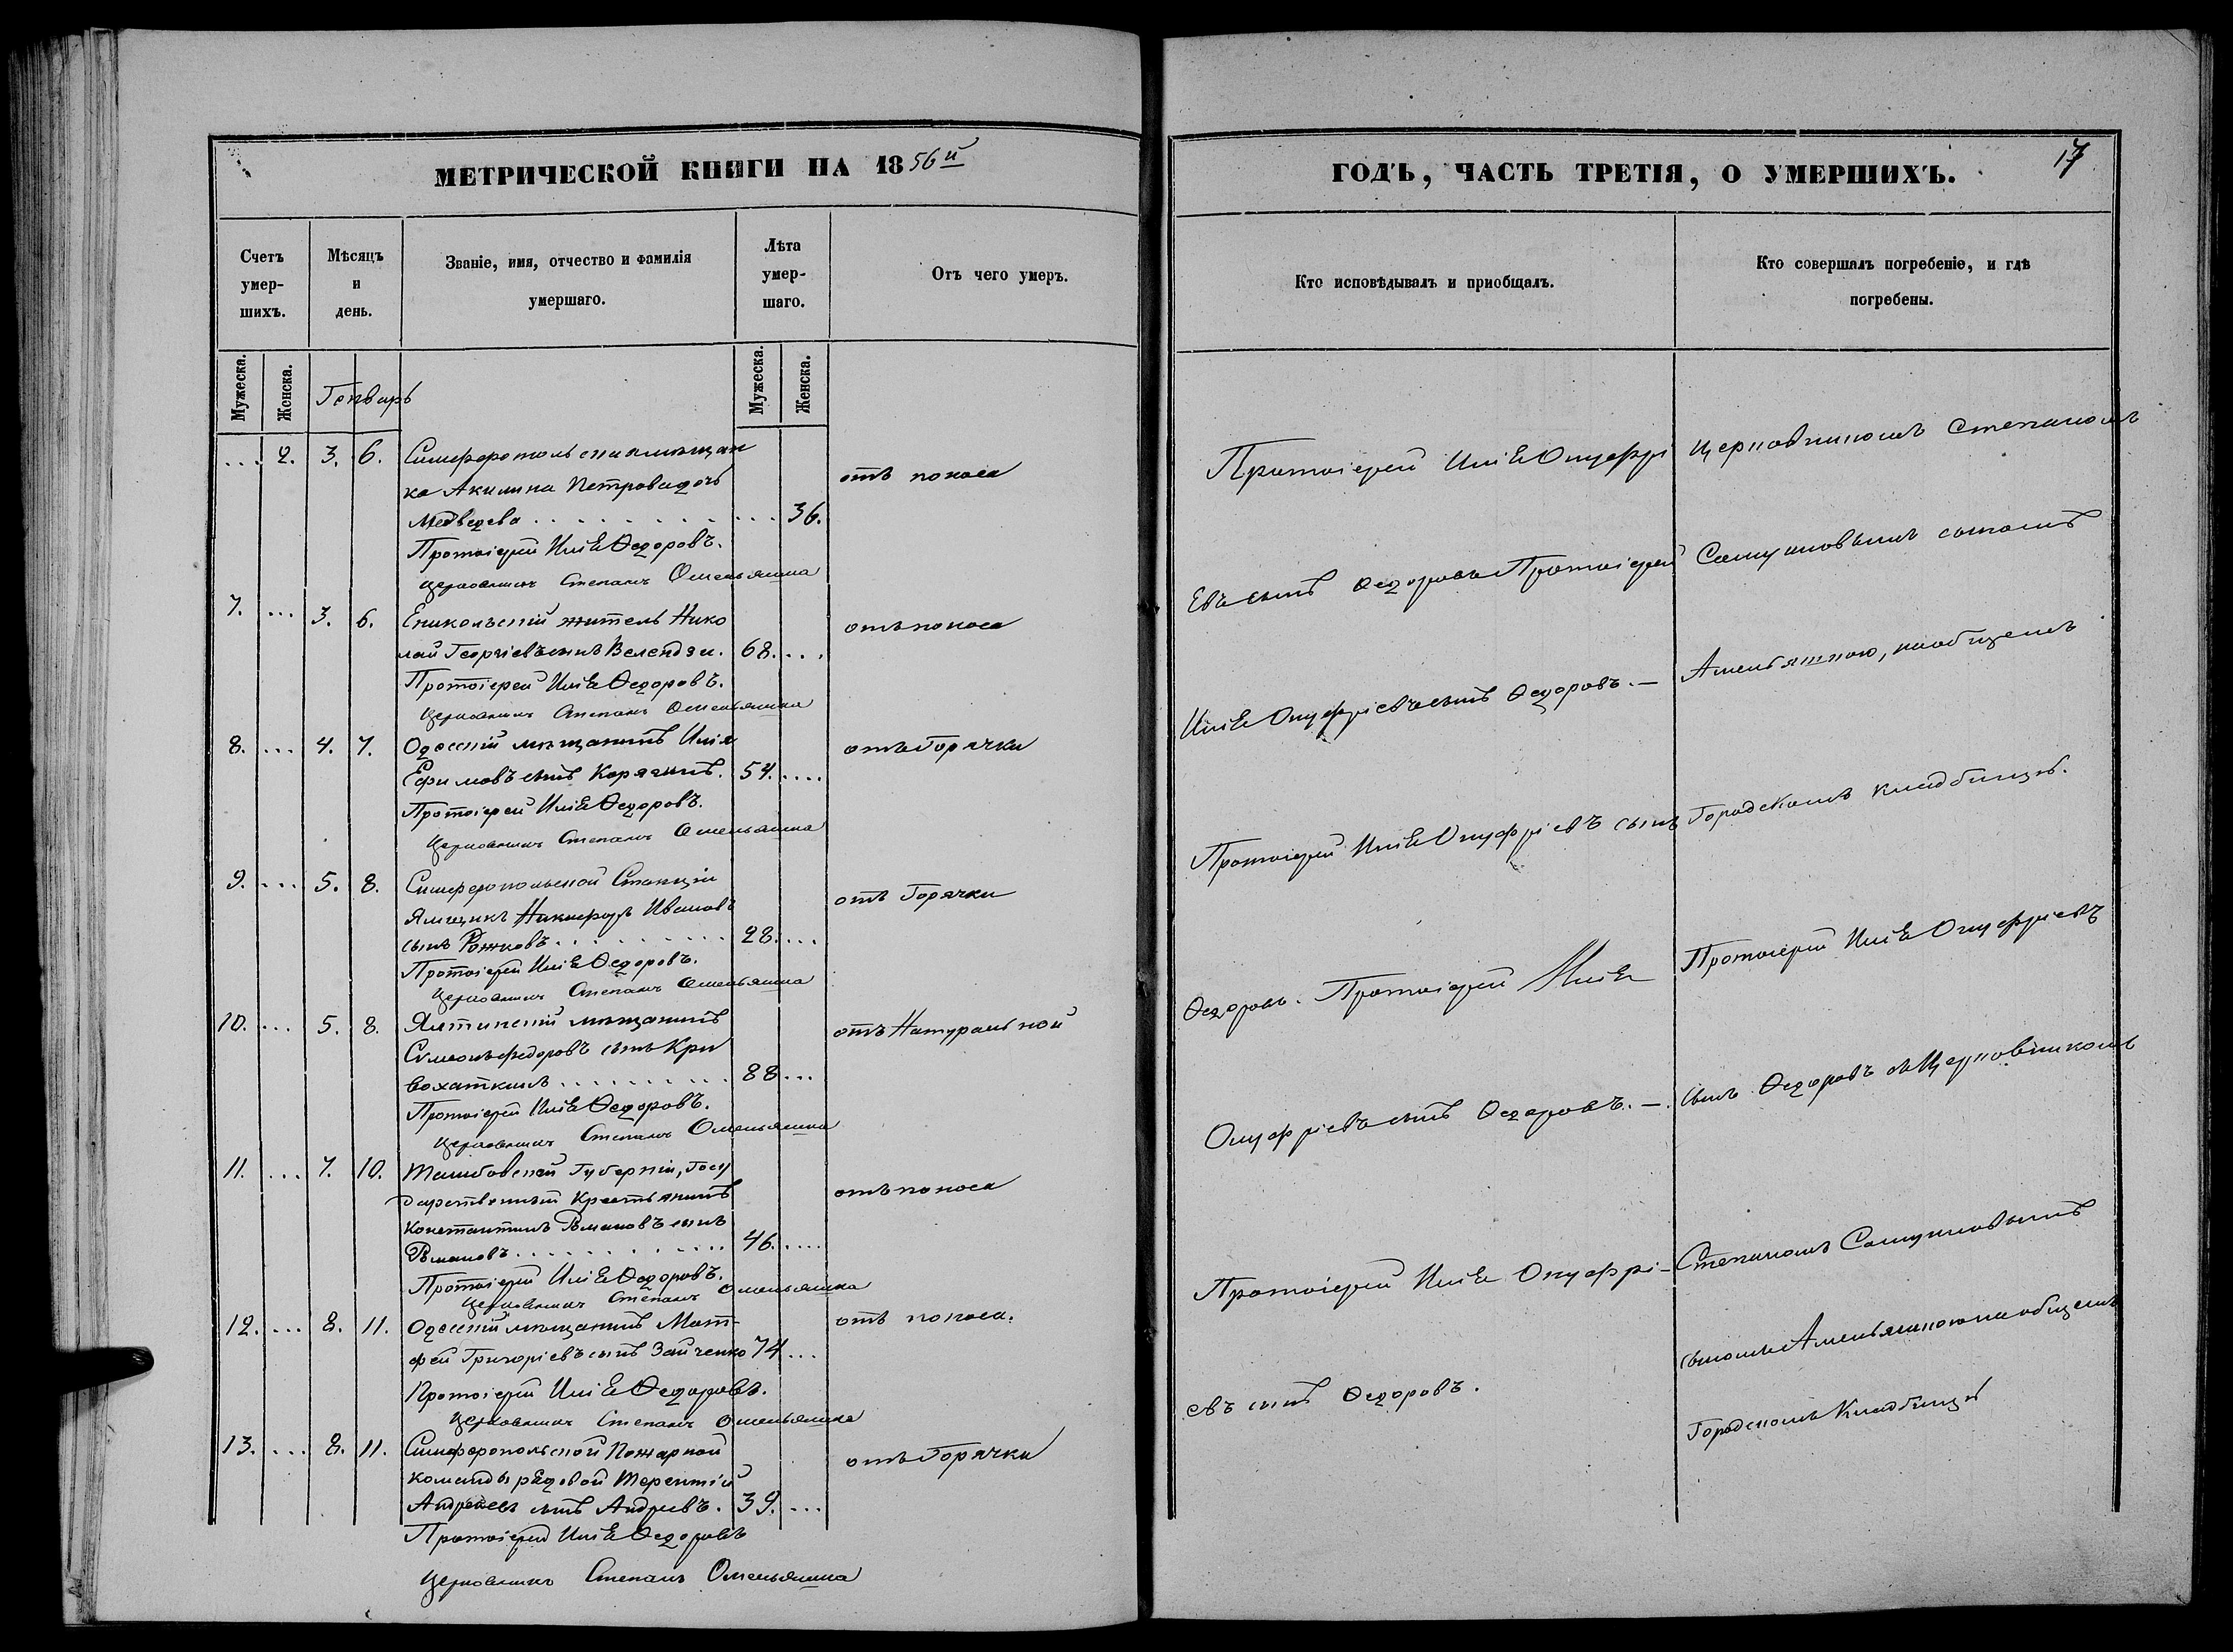 МЕТРИЧЕСКОЙ КНИГИ НА 1856й
Счетъ умер-шихъ.
Мѣсяцъ и день.
Званіе, имя, отчество и фамилія умершаго.
Лѣта умер-шаго.
Отъ чего умеръ.
Мужеска.
Женска.
Генварь
Мужеска.
Женска.
... 2. 3. 6. Симферопольская мѣщан
ка Акилина Петрова дочь
отъ поноса
Медведева . . . 36.
Протоіерей Илія Ѳедоровъ.
Церковникъ Степанъ Оменьяшка
7. ... 3. 6. Еникольскій житель Нико
отъ поноса
лай Георгіевъ сынъ 68. ...
Протоіерей Илія Ѳедоровъ.
Церковникъ Степанъ Оменьяшка
8. ... 4. 7. Одесскій мѣщанинъ Илія
отъ Горячки
Ефимовъ сынъ Корягинъ. 54. ....
Протоіерей Илія Ѳедоровъ.
Церковникъ Степанъ Оменьяшка
9. ... 5. 8. Симферопольской Станціи
отъ Горячки
Ямщикъ Никифоръ Ивановъ
сынъ Рожковъ . . . 28. ...
Протоіерей Илія Ѳедоровъ.
Церковникъ Степанъ Оменьяшка
10. ... 5. 8. Ялтинскій мѣщанинъ
отъ Натуральной
Сумеонъ Федоровъ сынъ Кри
вохаткинъ . . . 88 ...
Протоіерей Илія Ѳедоровъ.
Церковникъ Степанъ Оменьяшка
11. ... 7. 10. Тамбовской Губерніи, Госу
дарственный Крестьянинъ
отъ поноса
Константинъ Романовъ сынъ
Романовъ . . . 46. ....
Протоіерей Илія Ѳедоровъ.
Церковникъ Степанъ Оменьяшка
12. ... 8. 11. Одесскій мѣщанинъ Мат-
отъ поноса.
фей Григоріевъ сынъ Зайченко 74 ...
Протоіерей Илія Ѳедоровъ.
Церковникъ Степанъ Оменьяшка
13. ... 8. 11. Симферопольской Пожарной
команды рядовой Терентій
отъ Горячки
Андреевъ сынъ Андреевъ. 39. ...
Протоіерей Илія Ѳедоровъ
Церковникъ Степанъ Оменьяшка
ГОДЪ, ЧАСТЬ ТРЕТІЯ, О УМЕРШИХЪ.
17
Кто исповѣдывалъ и приобщалъ.
Кто совершалъ погребеніе, и гдѣ погребены.
Протоіерей Илія Онуфрі
Евъ сынъ Ѳедоровъ Протоіерей
Илія Онуфріевъ сынъ Ѳедоровъ. —
Протоіерей Илія Онуфріевъ сынъ
Ѳедоровъ. Протоіерей Илія
Онуфріевъ сынъ Ѳедоровъ. —
Протоіерей Илія Онуфрі-
евъ сынъ Ѳедоровъ.
Церковникомъ Степаномъ
Самуиловымъ сыномъ
Аменьяшкою, на общемъ
Городскомъ кладбищѣ.
Протоіерей Илія Онуфріевъ
сынъ Ѳедоровъ съ Церковникомъ
Степаномъ Самуиловымъ
сыномъ Аменьяшкою на общемъ
Городскомъ Кладбищѣ